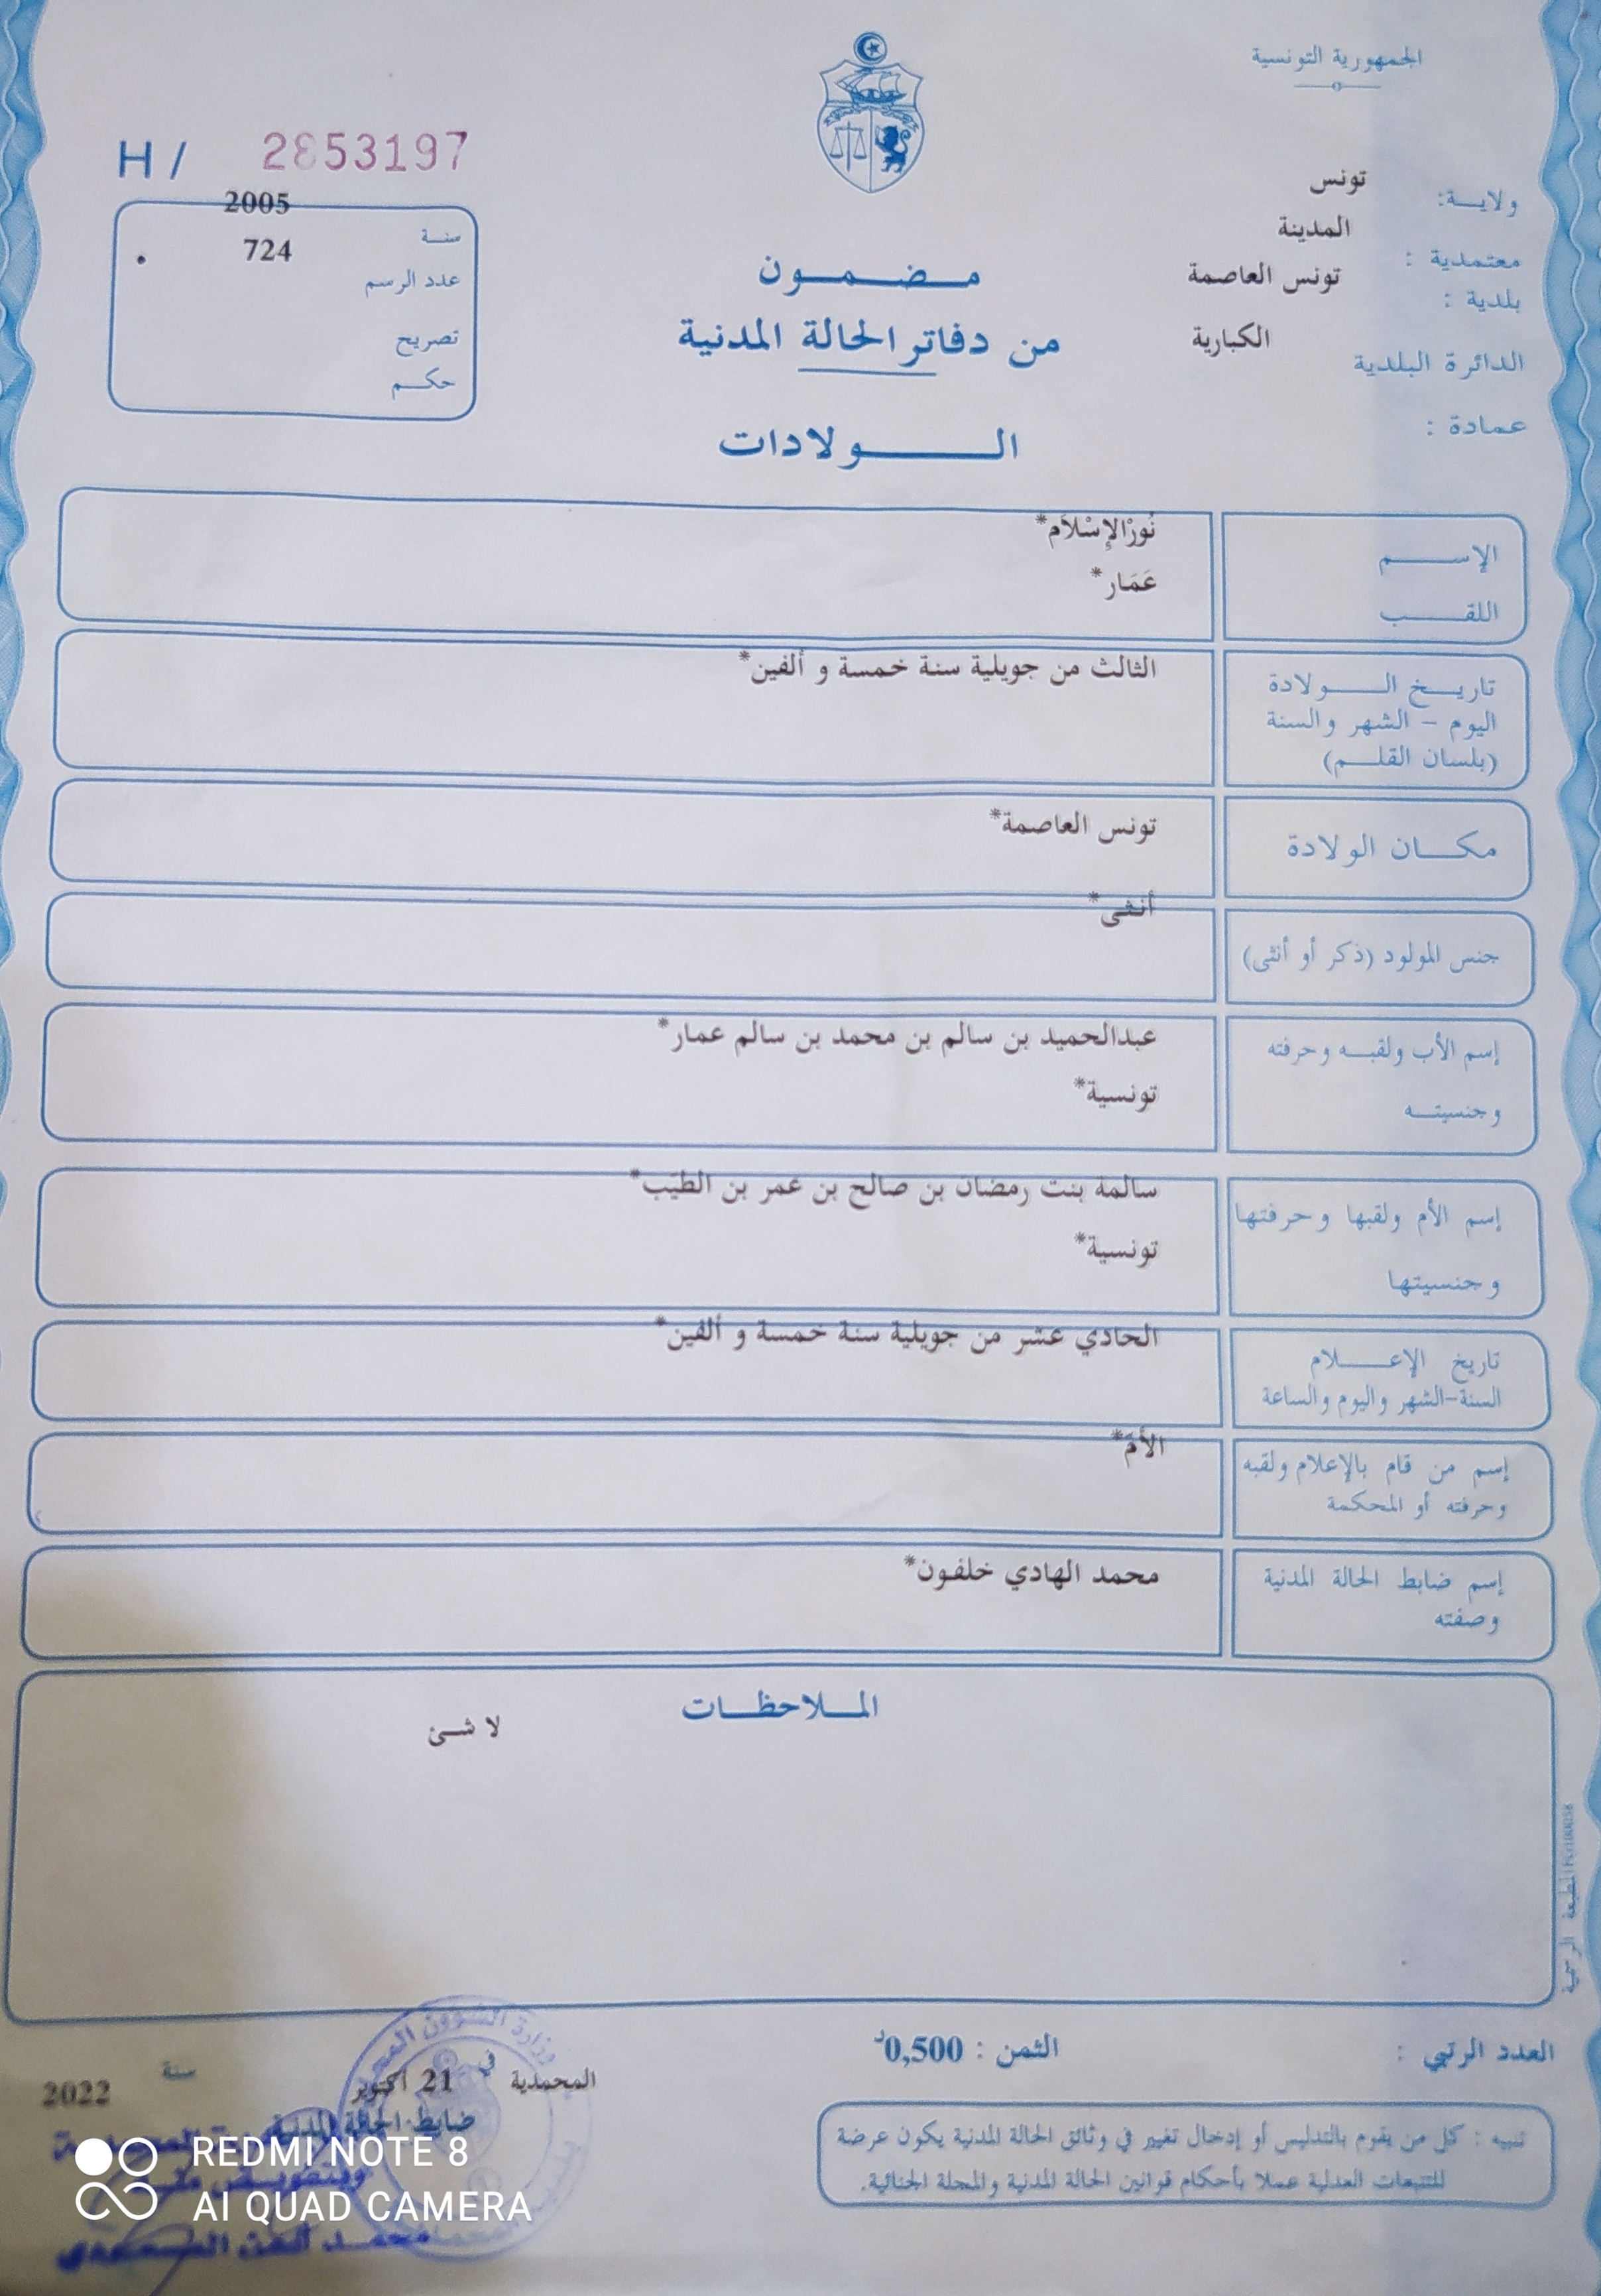 الجمهورية التونسية
H / 2853197
ولاية: تونس
معتمدية : المدينة
بلدية : تونس العاصمة
الدائرة البلدية الكبارية
عمادة :
سنة 2005
عدد الرسم 724
تصريح
حكم
مضمون
من دفاتر الحالة المدنية
الولادات
الإسم نُورْالإِسْلاَم*
اللقب عَمَار*
تاريخ الولادة الثالث من جويلية سنة خمسة و ألفين*
اليوم – الشهر والسنة
(بلسان القلم)
مكان الولادة تونس العاصمة*
جنس المولود (ذكر أو أنثى) أنثى*
إسم الأب ولقبه وحرفته عبدالحميد بن سالم بن محمد بن سالم عمار*
وجنسيته تونسية*
إسم الأم ولقبها وحرفتها سالمة بنت رمضان بن صالح بن عمر بن الطيَب*
وجنسيتها تونسية*
تاريخ الإعلام الحادي عشر من جويلية سنة خمسة و ألفين*
السنة-الشهر واليوم والساعة
إسم من قام بالإعلام ولقبه الأمّ*
وحرفته أو المحكمة
إسم ضابط الحالة المدنية محمد الهادي خلفون*
وصفته
الملاحظات
لا شئ
المطبعة الرسمية
العدد الرتبي :
الثمن : 0,500د
المحمدية في 21 أكتوبر سنة 2022
ضابط الحالة المدنية
تنبيه : كل من يقوم بالتدليس أو إدخال تغيير في وثائق الحالة المدنية يكون عرضة
للتتبعات العدلية عملا بأحكام قوانين الحالة المدنية والمجلة الجنائية.
وزارة الشؤون
REDMI NOTE 8
AI QUAD CAMERA